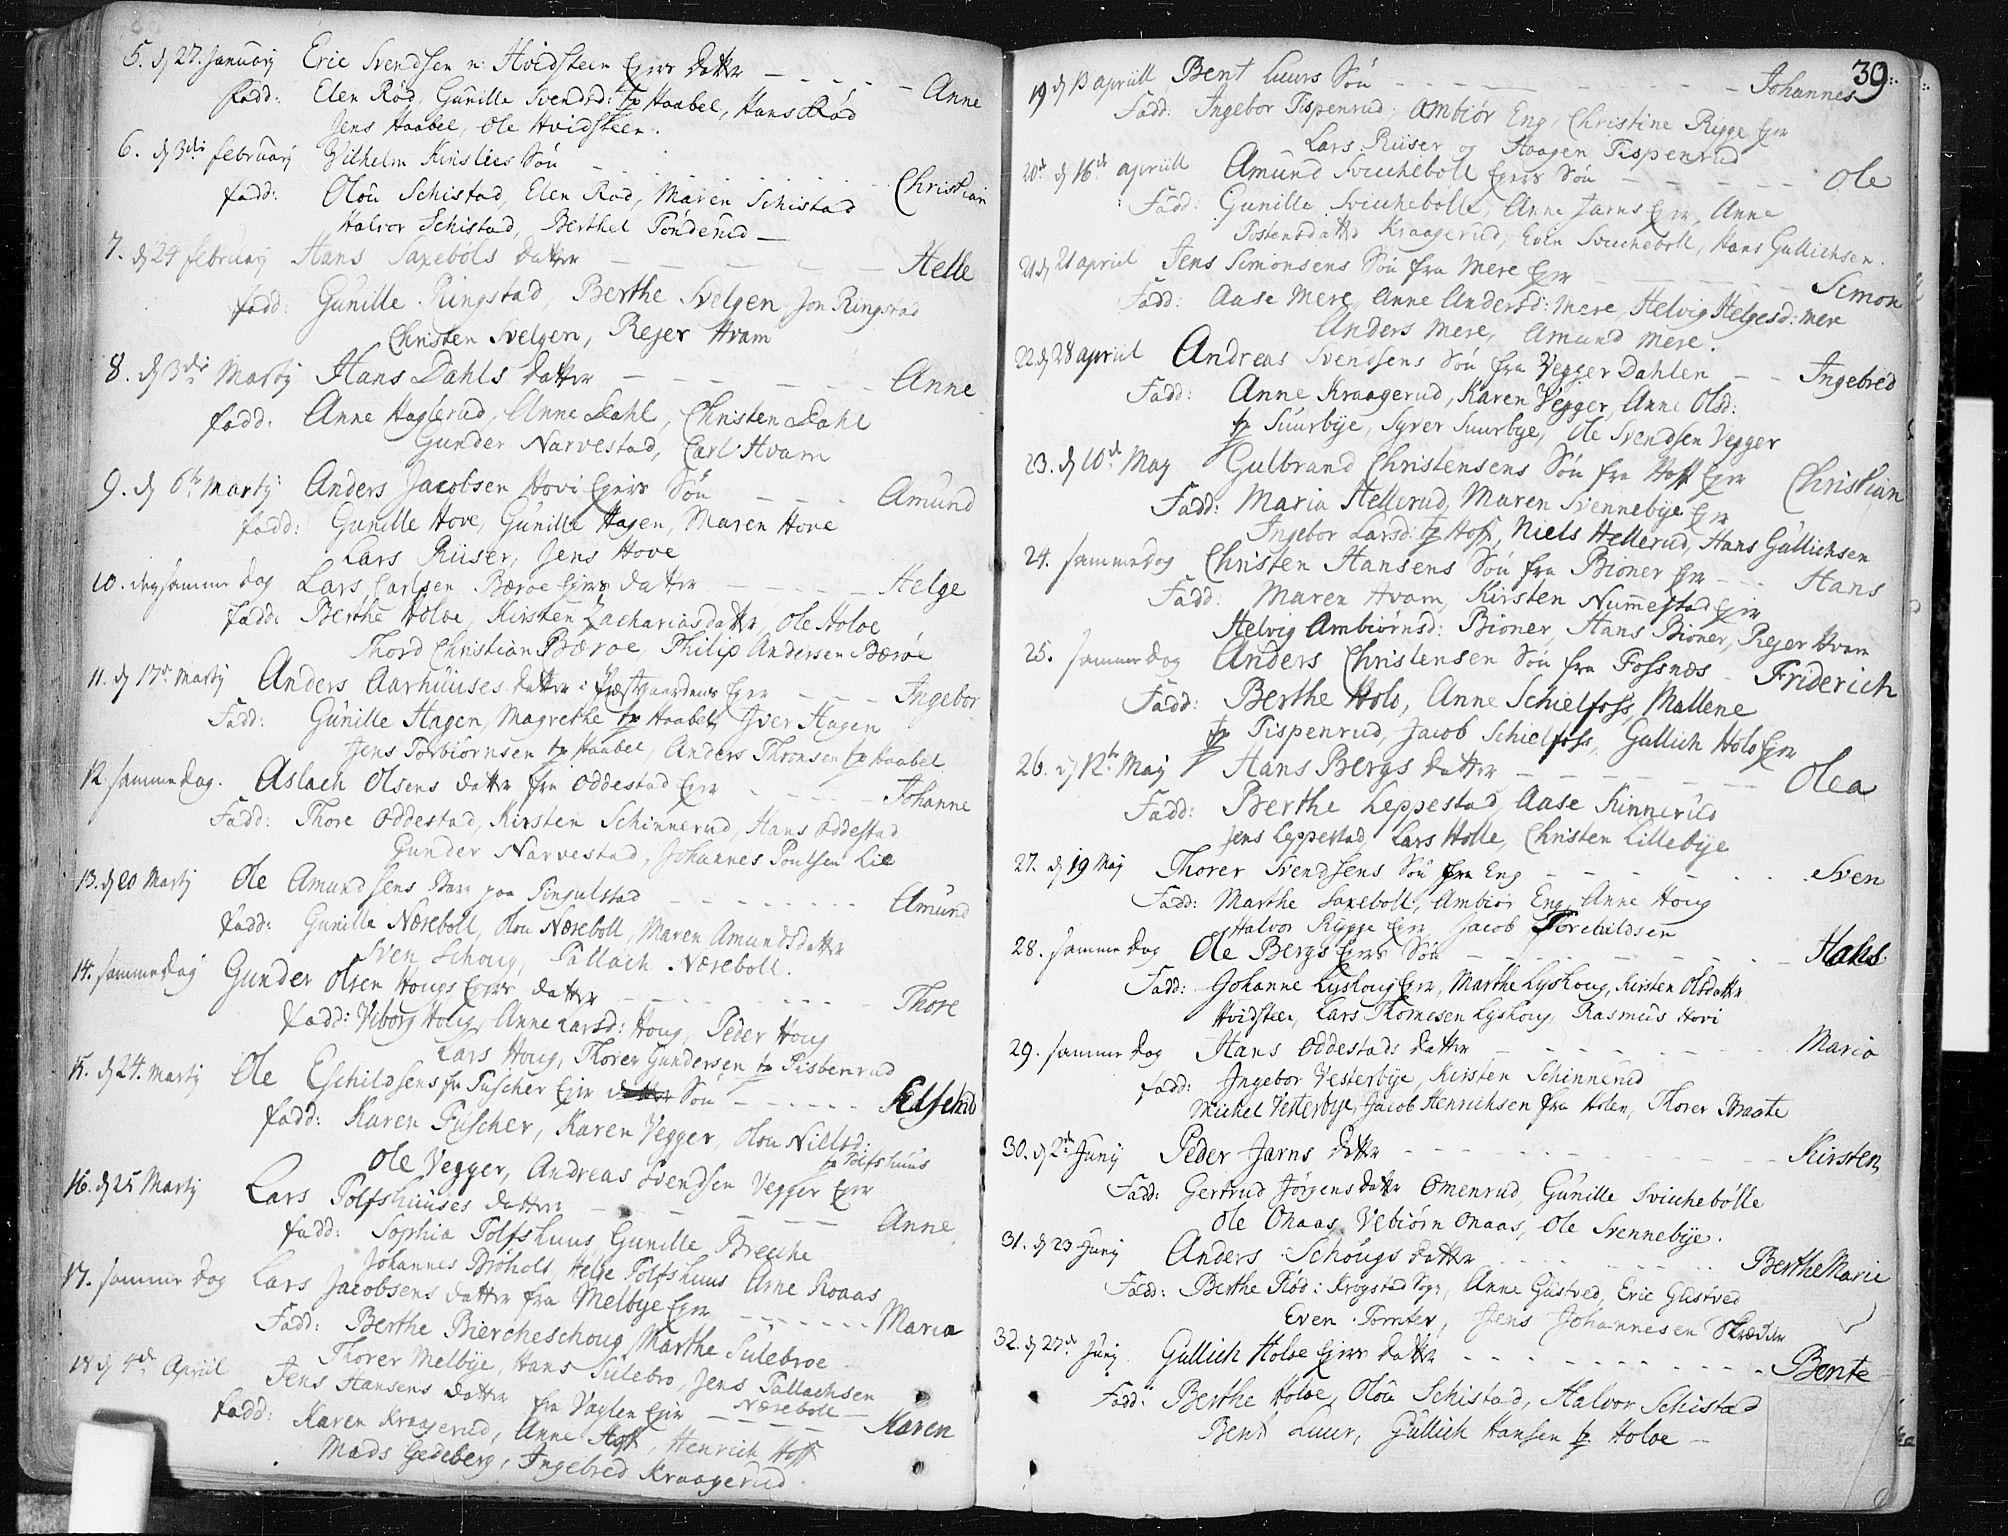 5. d 27. January Eric Svendsen n: Hvidsteen Ejers Datter - - - - Anne
Fadd: Elen Rød, Gunille Svendsd: fr Haabel, Hans Rød
Jens Haabel, Ole Hvidsteen.
6. d 3die february Vilhelm Søn - - - - Christian
fadd: Olou Schistad, Elen Rød, Maren Schistad
Halvor Schistad, Berthel Tønderud —
7. d 24 february Hans Saxebøls Datter - - - - Helle
fadd: Gunille Ringstad, Berthe Svelgen Jon Ringstad
Christen Svelgen, Rejer Hvam
8. d 3die Martÿ Hans Dahls Datter - - - - Anne
fadd: Anne Haglerud, Anne Dahl, Christen Dahl
Gunder Narvestad, Carl Hvam
9. d 6te Martÿ Anders Jacobsen Hovi Ejers Søn - - - - Amund
fadd: Gunille Hove, Gunille Hagen, Maren Hove
Lars Riiser, Jens Hove
10. samme Dag Lars Carlsen Børøe Ejers Datter - - - - Helge
fadd: Berthe Holøe, Kirsten Zachariasdatter, Ole Holøe
Thord Christian Børøe, Philip Andersen Børøe
11. d 17de Martÿ Anders Aarhuuses Datter i Præstgaardens Ejer - - - Ingebor
Fadd: Gunille Hagen, Magrethe fr Haabel, Iver Hagen
Jens Torbiørnsen fr Haabel, Anders Thronsen fr Haabel
12. samme Dag. Aslach Olsens Datter fra Oddestad Ejer - - - - Johanne
Fadd: Thore Oddestad, Kirsten Schinnerud, Hans Oddestad
Gunder Narvestad, Johannes Poulsen Lie
13. d 20 Martÿ Ole Amundsens Barn paa Tingulstad - - - - Amund
fadd: Gunille Næreboll, Olou Næreboll, Maren Amundsdatter
Sven Schoug, Pallach Næreboll.
14. samme Dag Gunder Olsen Hougs Ejers Datter - - - - Thore
fadd: Viborg Houg, Anne Larsd: Houg, Peder Houg
Lars Houg, Thorer Gundersen fr Tisbenrud
15. d 24. Martÿ Ole Eschildsens fr Fuscher Ejer Søn - - - -
fadd: Karen Fuscher, Karen Vegger, Olou Nielsd: fr Tolfshuus
Ole Vegger, Andreas Svendsen Vegger Ejer
16. d 25 Martÿ Lars Tolfshuuses Datter - - - - Anne
fadd: Sophia Tolfshuus, Gunille Breche
Johannes Brøholt, Helge Tolfshuus Arne Roaas
17. samme Dag Lars Jacobsens Datter fra Melbye Ejer - - - - Maria
Fadd: Berthe Biercheschoug, Marthe Sulebroe
Thorer Melbye, Hans Sulebro, Jens Pallachsen Næreboll
18 d 4de Apriil Jens Hansens Datter fra Vaglen Ejer - - - - Karen
fadd: Karen Kraagerud, Anne Hoff, Henrich Hoff
Mads Gedeberg, Ingebred Kraagerud.
39.
19 d 13 apriill Bent Luurs Søn - - - - Johannes
Fadd: Ingebor Tispenrud, Ambiør Eng, Christine Rygge Ejer
Lars Riiser og Haagen Tispenrud
20de d 16de apriill Amund Svichebøll Ejers Søn - - - - Ole
Fadd: Gunille Svichebølle, Anne Jarns Ejer, Anne
Tostensdatter Kraagerud, Even Svichebøll, Hans Gullichsen.
21 d 21 apriil Jens Simonsens Søn fra Mere Ejer - - - - Simon
Fadd: Aase Mere, Anne Andersd: Mere, Helvig Helgesd: Mere
Anders Mere, Amund Mere.
22 d 28 apriil Andreas Svendsens Søn fra Vegger Dahlen - - Ingebred
Fadd: Anne Kraagerud, Karen Vegger, Anne Olsd:
fr Suurbye, Syver Suurbye, Ole Svendsen Vegger
23. d 10de May Gulbrand Christensens Søn fra Hoff Ejer Christian
Fadd: Maria Hellerud, Maren Svennebye Ejer
Ingebor Larsd: fr Hoff, Niels Hellerud, Hans Gullichsen
24. samme dag Christen Hansens Søn fra Bioner Ejer - - - Hans
Fadd: Maren Hvam, Kirsten Numestad Ejer
Helvig Ambiørnsd: Bioner, Hans Bioner, Rejer Hvam
25. samme dag Anders Christensen Søn fra Fossnæs - Friderich
Fadd: Berthe Holø, Anne Schielfoss, Mallene
fr Tispenrud, Jacob Schielfoss, Gullich Holø Ejer
26. d 12te May Hans Bergs Datter - - - - Olea
Fadd: Berthe Leppestad, Aase Kinnerud
Jens Leppestad, Lars Holle, Christen Lillebye
27. d 19 May Thorer Svendsens Søn fra Eng - - - - Sven
Fadd: Marthe Saxeboll, Ambiør Eng, Anne Houg
Halvor Rygge Ejer, Jacob Torchildsen
28. samme Dag Ole Bergs Ejers Søn - - - - Hans
Fadd: Johanne Lyshoug Ejer, Marthe Lyshoug, Kirsten Olsdatter
Hvidsteen, Lars Thomesen Lyshoug, Rasmus Hovi
29. samme Dag Hans Oddestads Datter - - - - Maria
fadd: Ingebor Vesterbye, Kirsten Schinnerud
Michel Vesterbye, Jacob Henrichsen fra Holen, Thorer Braate
30. d 2den Juny Peder Jarns Datter - - - - Kirsten
Fadd: Gertrud Jørgens datter Omenrud, Gunille Svichebølle
Ole Onaas, Vebiørn Onaas, Ole Svennebye.
31. d 23 Juny Anders Schougs Datter - - - - Berthe Marie
Fadd: Berthe Rød i Krogstad Sogn, Anne Gustved, Eric Gustved
Even Tomter, Jens Johannesen Skrædder
32. d 27de Juny Gullich Holøe Ejers Datter - - - - Bente
Fadd: Berthe Holøe, Olou Schistad, Halvor Schistad
Bent Luur, Gullich Hansen fr Holøe —